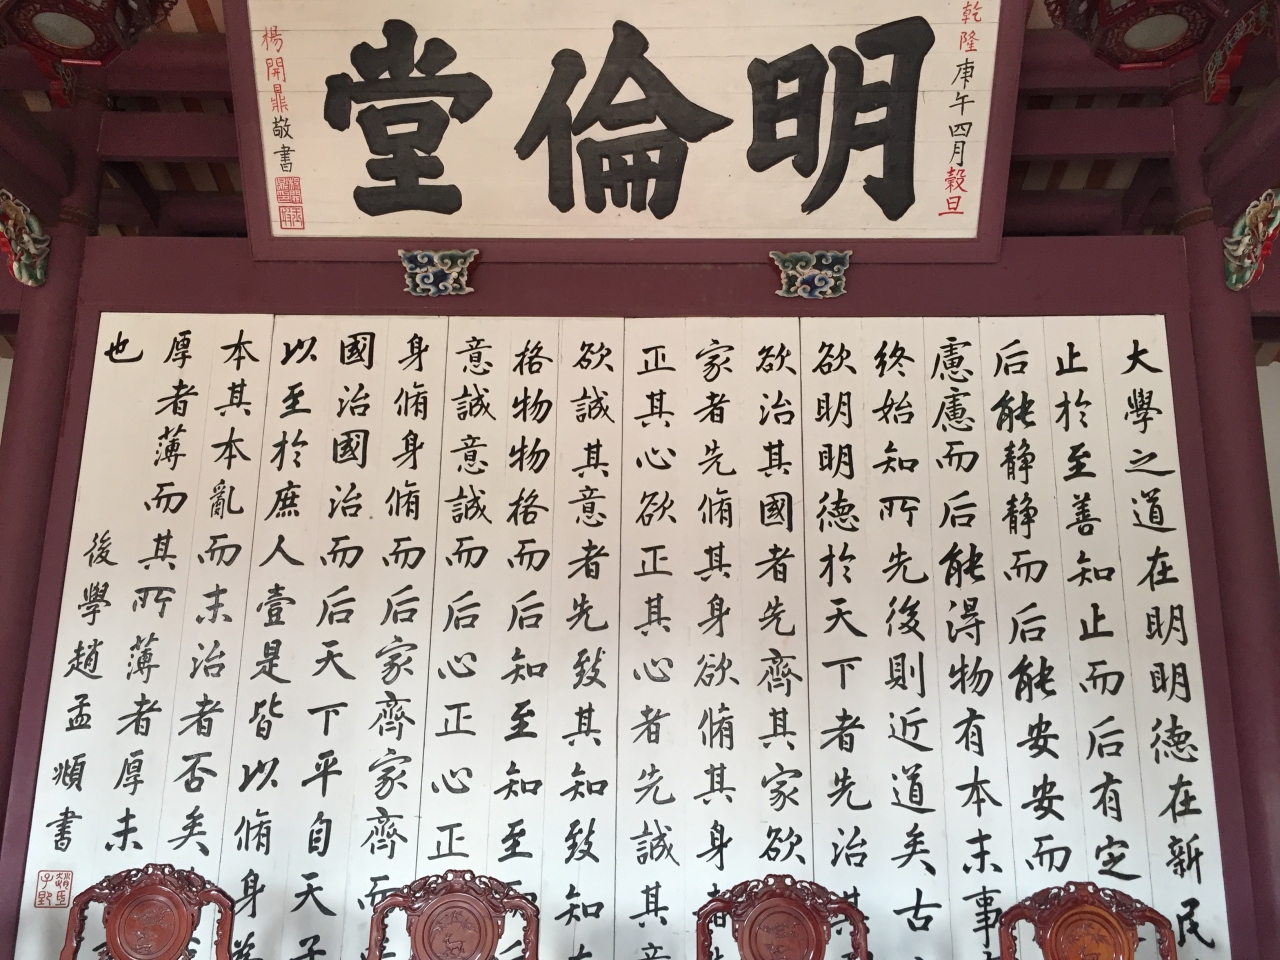 乾隆庚午四月穀旦
明倫堂
楊開鼎敬書
大學之道在明明德在新民
止於至善知止而后有定
后能静静而后能安安而
慮慮而后能得物有本末事
終始知所先後則近道矣古
欲明明德於天下者先治其
欲治其國者先齊其家欲
家者先脩其身欲脩其身
正其心欲正其心者先誠其意
欲誠其意者先致其知致知在
格物物格而后知至知至
意誠意誠而后心正心正
身脩身脩而后家齊家齊而
國治國治而后天下平自天子
以至於庶人壹是皆以脩身為
本其本亂而末治者否矣
厚者薄而其所薄者厚未
也
後學趙孟頫書